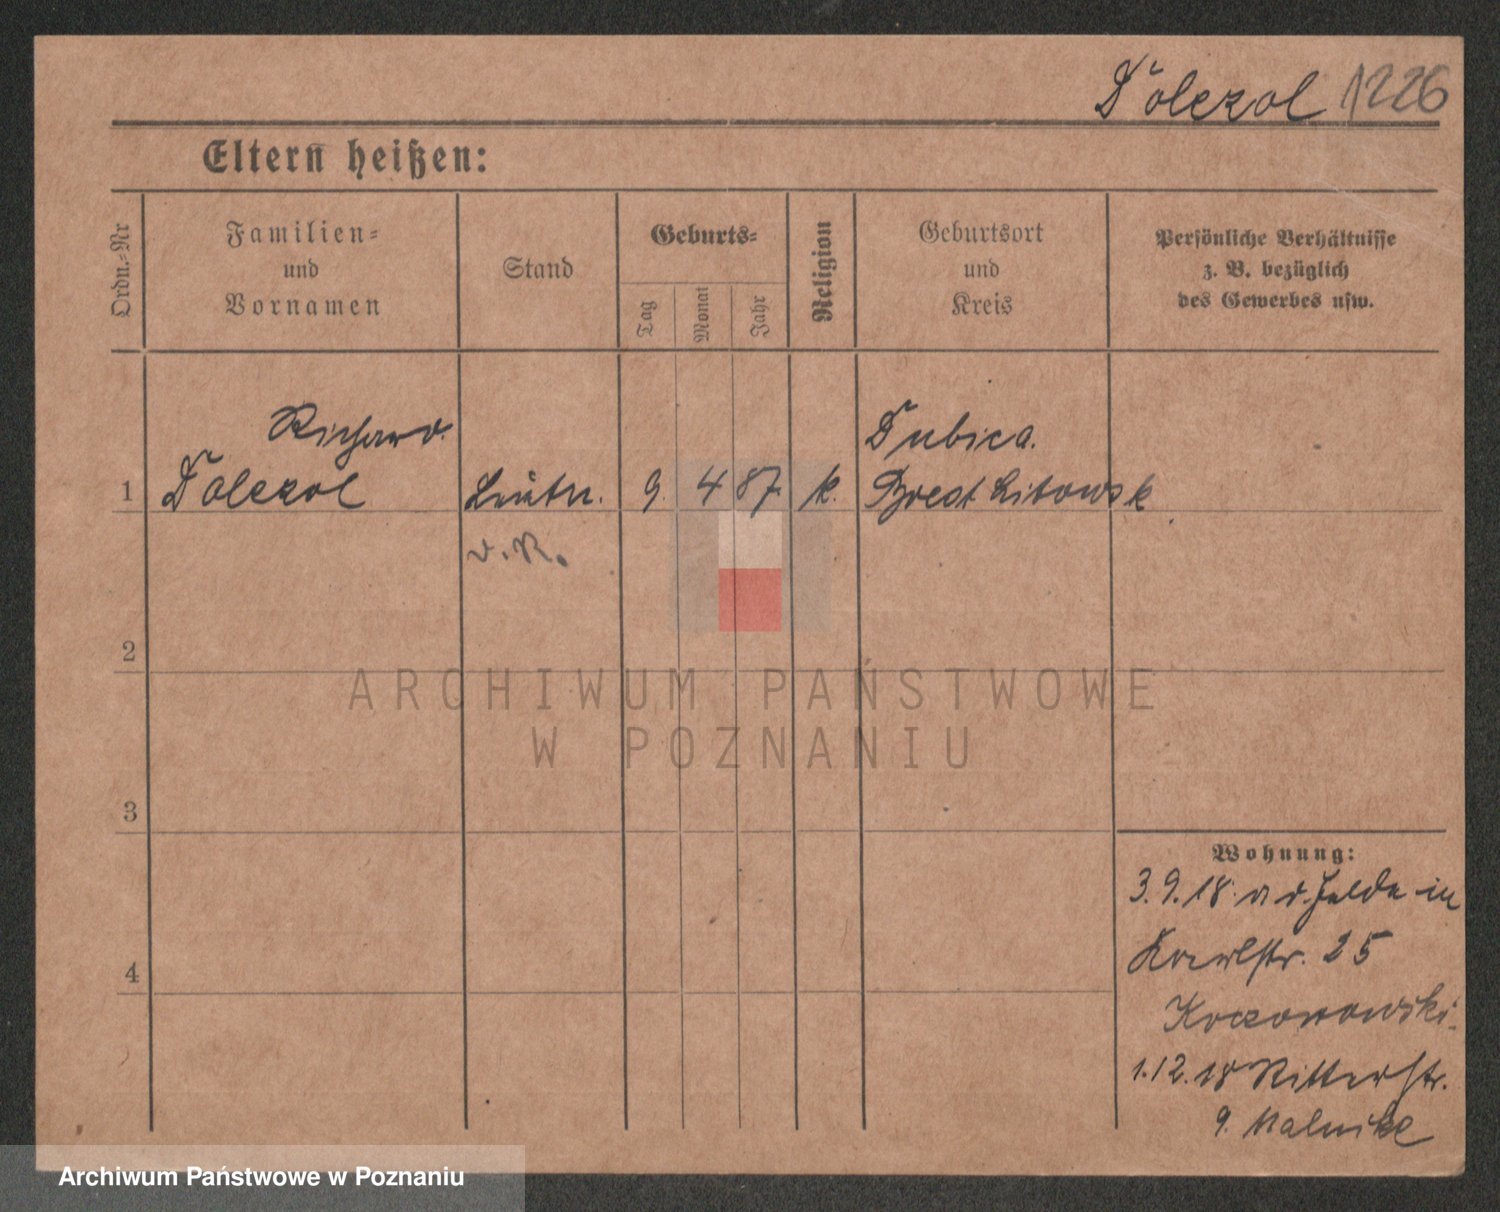 Dolezol 1226
Eltern heißen:
Ordn.-Nr
Familien-
und
Vornamen
Stand
Geburts-
Tag
Monat
Jahr
Religion
Geburtsort
und
Kreis
Persönliche Verhältnisse
z. B. bezüglich
des Gewerbes usw.
Richard
1 Dolezol Leutn. 9. 4 87. k.
Dubica.
Brest Litowsk
d. R.
2
3
4
ARCHIWUM PAŃSTWOWE
W POZNANIU
Wohnung:
3.9.18. a d. Felde in
25
Koczorowski
1.12.18 Ritterstr.
9.
Archiwum Państwowe w Poznaniu